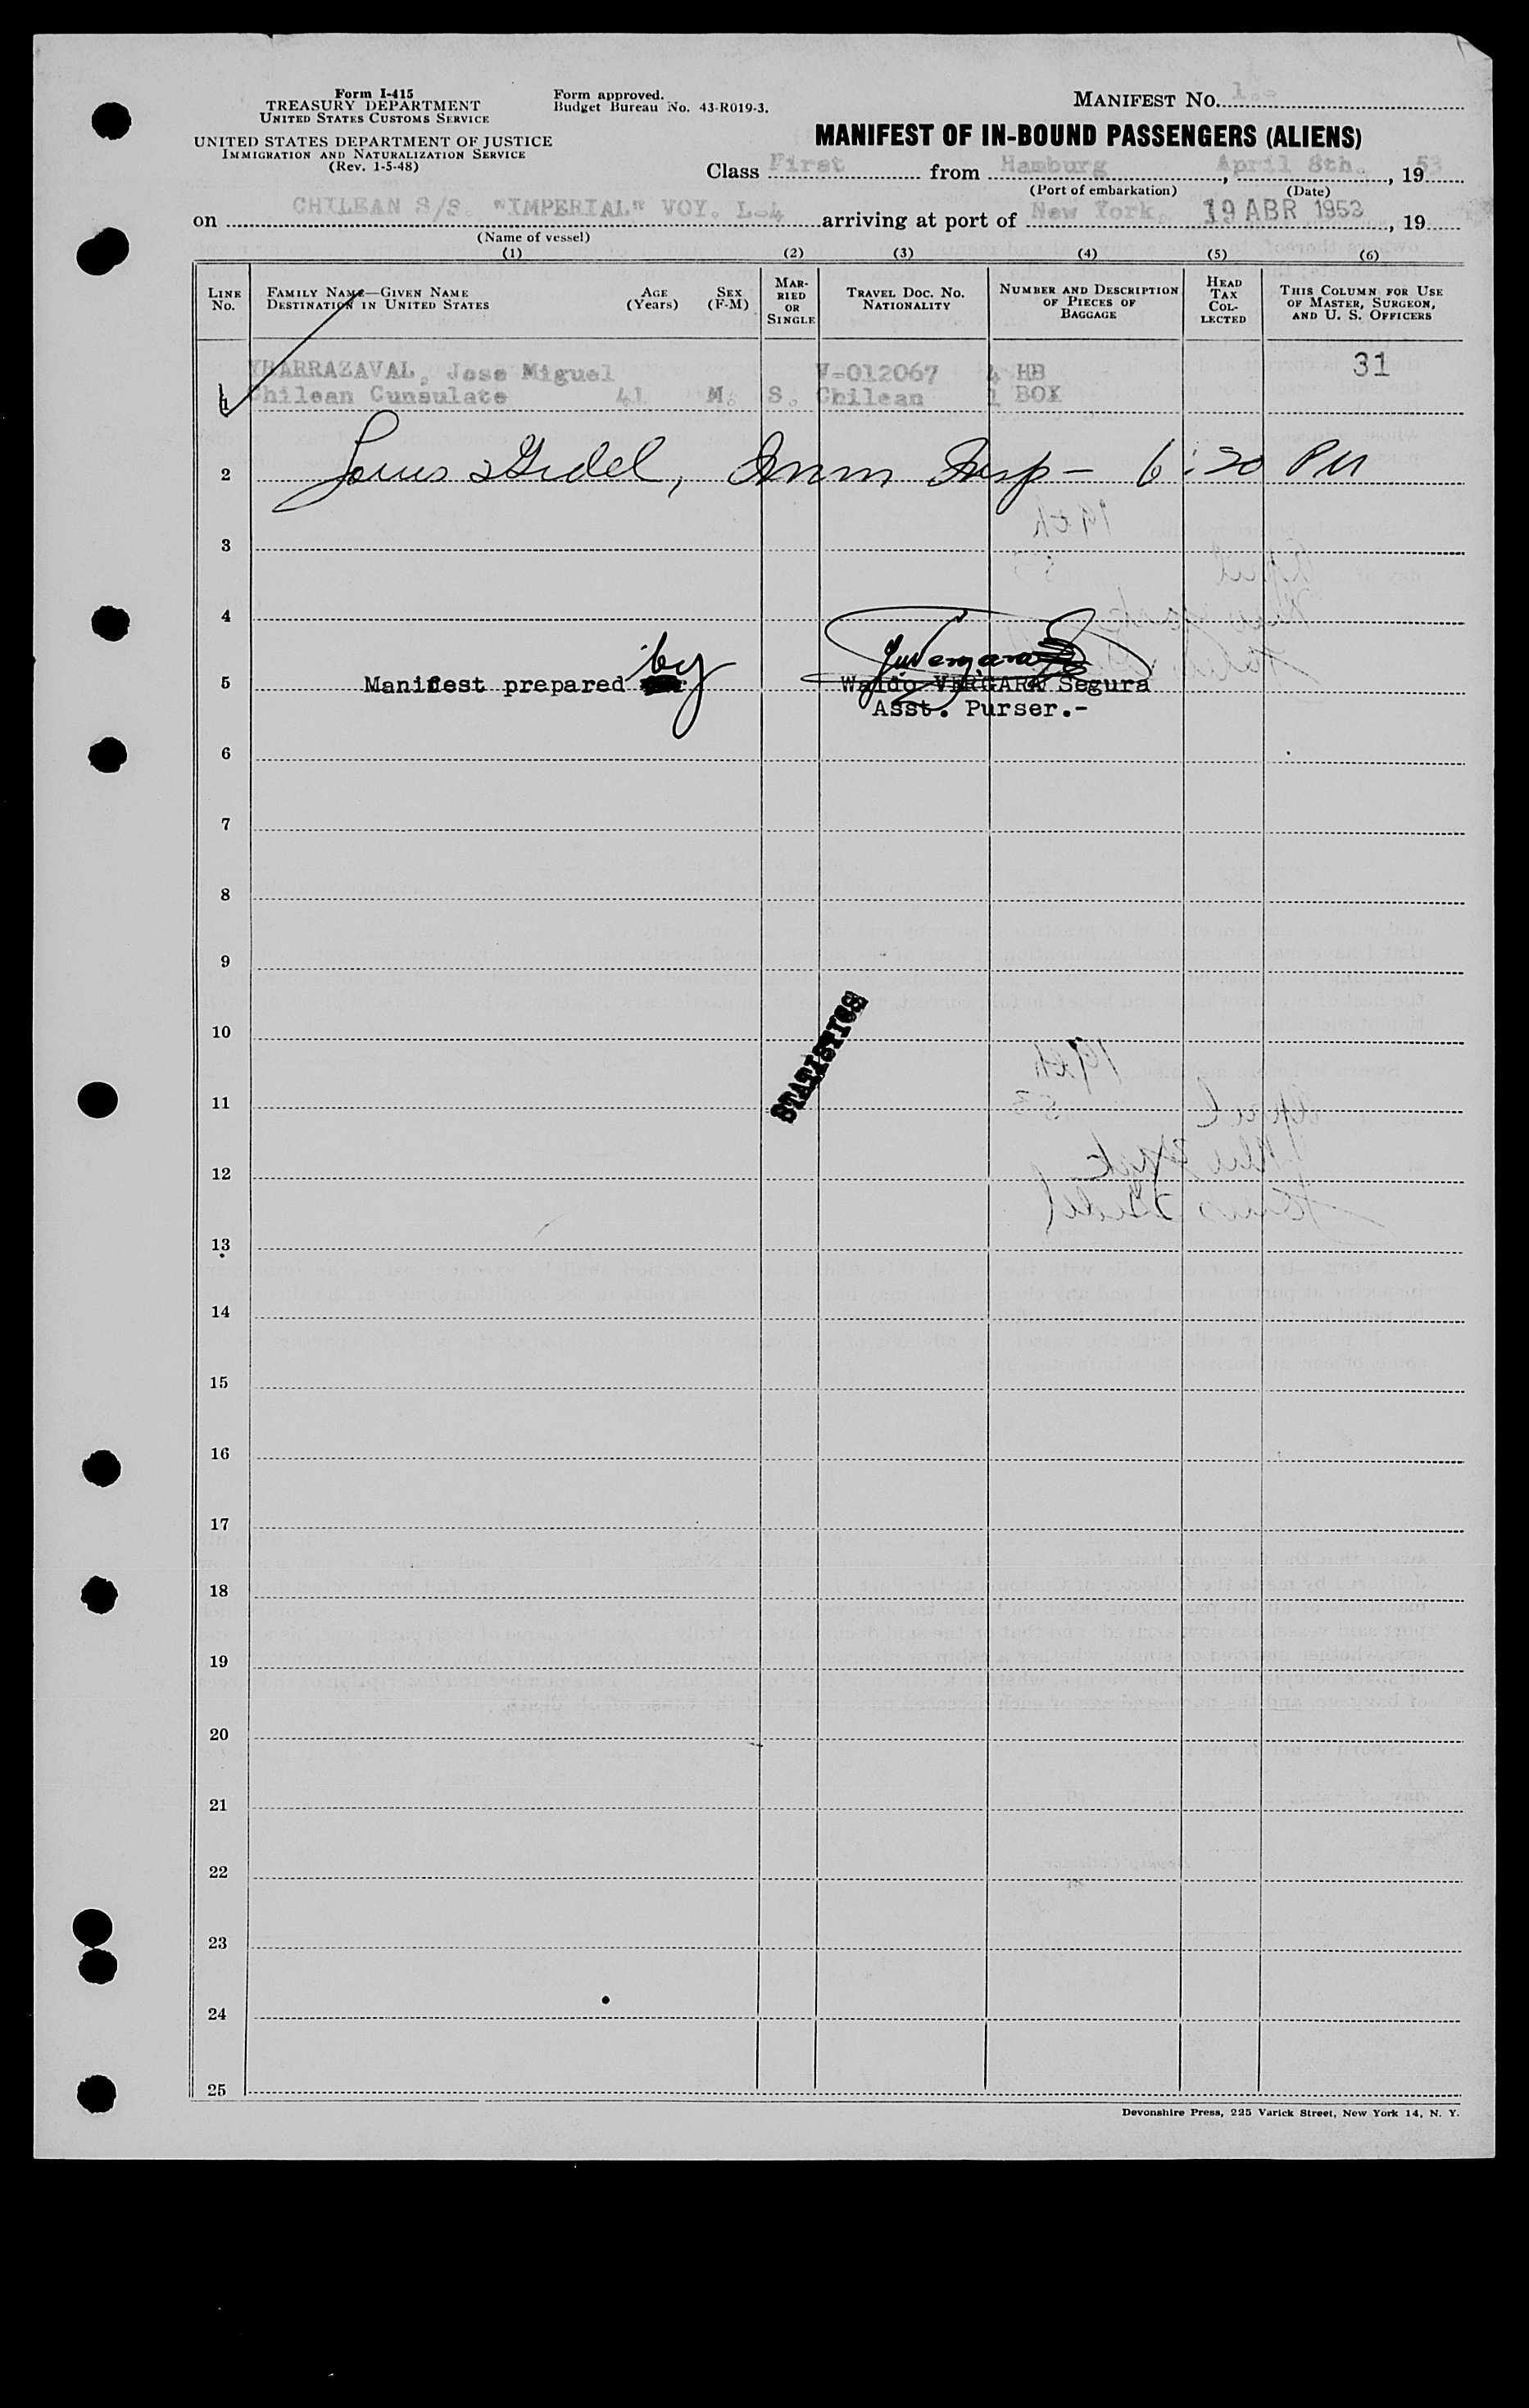 Form I-415
TREASURY DEPARTMENT
UNITED STATES CUSTOMS SERVICE
UNITED STATES DEPARTMENT OF JUSTICE
IMMIGRATION AND NATURALIZATION SERVICE
(Rev. 1-5-48)
Form approved.
Budget Bureau No. 43-R019-3.
MANIFEST No. 1.-
MANIFEST OF IN-BOUND PASSENGERS (ALIENS)
Class First from Hamburg, April 8th., 1953
(Port of embarkation) (Date)
on CHILEAN S/S. "IMPERIAL" VOY. L-4 arriving at port of New York, 19 ABR 1953, 19
(Name of vessel)
(1) (2) (3) (4) (5) (6)
LINE No.
FAMILY NAME—GIVEN NAME
DESTINATION IN UNITED STATES
AGE (Years)
SEX (F-M)
MARRIED OR SINGLE
TRAVEL DOC. NO.
NATIONALITY
NUMBER AND DESCRIPTION OF PIECES OF BAGGAGE
HEAD TAX COLLECTED
THIS COLUMN FOR USE OF MASTER, SURGEON, AND U. S. OFFICERS
YRARRAZAVAL, Jose Miguel V-012067 4 HB 31
1 Chilean Cunsulate 41 M. S. Chilean 1 BOX
2 Louis Gidel, Imm Insp - 6:20 PM
3
4
5 Manifest prepared by Waldo VERGARA Segura
Asst. Purser.-
6
7
8
9
10
STATISTICS
11
12
13
14
15
16
17
18
19
20
21
22
23
24
25
Devonshire Press, 225 Varick Street, New York 14, N. Y.